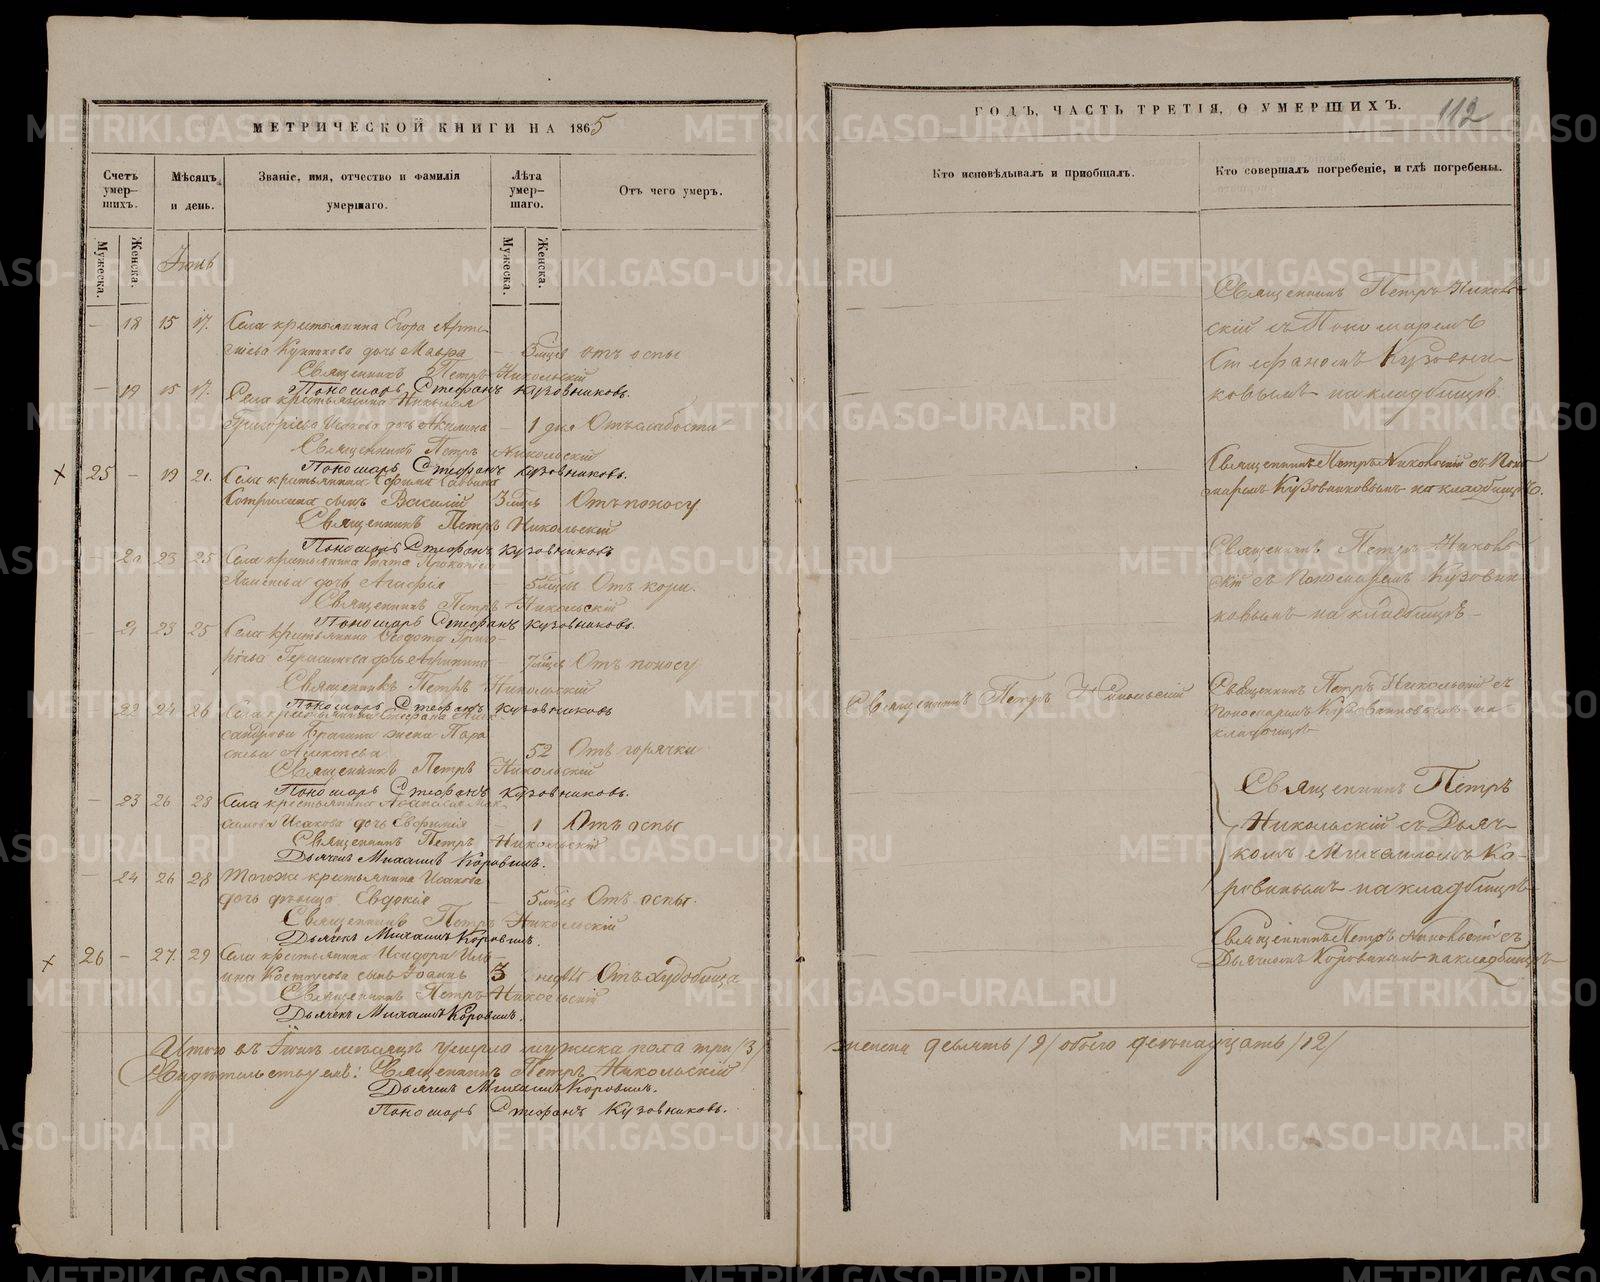 МЕТРИЧЕСКОЙ КНИГИ НА 1865
Счетъ умер-
шихъ.
Мѣсяцъ
и день.
Званіе, имя, отчество и фамилія
умершаго.
Лѣта
умер-
шаго.
Отъ чего умеръ.
Мужеска.
Женска.
Мужеска.
Женска.
Іюнь
— 18 15 17. Села крестьянина Егора Арте-
міева дочь Мавра — 3 мцев отъ оспы
Священникъ Петръ Никольскій
Пономарь Стефанъ Кузовниковъ.
— 19 15 17. Села крестьянина Николая
Григоріева Исакова дочь Акилина — 1 дня Отъ слабости
Священникъ Петръ Никольскій
Пономарь Стефанъ Кузовниковъ.
× 25 — 19 21. Села крестьянина Ефима Саввина
сынъ Василій 3 мцъ Отъ поносу
Священникъ Петръ Никольскій
Пономарь Стефанъ Кузовниковъ
— 20 23 25 Села крестьянина
дочь Агафія — 5 мцев Отъ кори.
Священникъ Петръ Никольскій
Пономарь Стефанъ Кузовниковъ.
— 21 23 25 Села крестьянина Ѳедота Григо-
ріева Герасимова дочь — 7 мцев Отъ поносу
Священникъ Петръ Никольскій
Пономарь Стефанъ Кузовниковъ
22 24 26 Села крестьянина Стефана Алек-
сандрова Брагина жена Пара-
скева — 52 Отъ горячки
Священникъ Петръ Никольскій
Пономарь Стефанъ Кузовниковъ.
— 23 26 28 Села крестьянина Аѳанасія Мак-
симова Исакова дочь Евфимія — 1 Отъ оспы
Священникъ Петръ Никольскій
Дьячекъ Михаилъ Коровинъ.
— 24 26 28 Тогоже крестьянина Исакова
дочь Евдокія — 5 мцев Отъ оспы.
Священникъ Петръ Никольскій
Дьячекъ Михаилъ Коровинъ.
× 26 — 27 29 Села крестьянина Исидора Иль-
ина сынъ Іоаннъ 3 Отъ худобища
Священникъ Петръ Никольскій
Дьячекъ Михаилъ Коровинъ.
Итого въ Іюнѣ мѣсяцѣ умерло мужеска пола три /3/
Свидѣтельствуемъ: Священникъ Петръ Никольскій
Дьячекъ Михаилъ Коровинъ.
Пономарь Стефанъ Кузовниковъ.
ГОДЪ, ЧАСТЬ ТРЕТІЯ, О УМЕРШИХЪ. 112
Кто исповѣдывалъ и пріобщалъ.
Кто совершалъ погребеніе, и гдѣ погребены.
Священникъ Петръ Николь-
скій съ Пономаремъ
Стефаномъ Кузовни-
ковымъ на кладбищѣ.
Священникъ Петръ Никольскій съ Поно-
маремъ Кузовниковымъ на кладбищѣ.
Священникъ Петръ Николь-
скій съ Пономаремъ Кузовни-
ковымъ на кладбищѣ
Священникъ Петръ Никольскій
Священникъ Петръ Никольскій съ
Пономаремъ Кузовниковымъ на
кладбищѣ
Священникъ Петръ
Никольскій съ Дьяч-
комъ Михаиломъ Ко-
ровинымъ на кладбищѣ
Священникъ Петръ Никольскій съ
Дьячкомъ Коровинымъ на кладбищѣ
женска девять /9/ обоего двенадцать /12/
METRIKI.GASO-URAL.RU